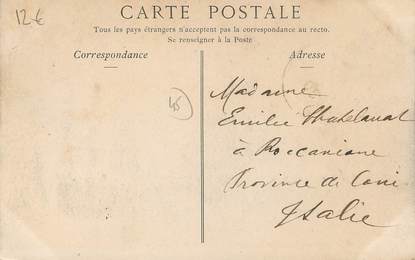 12 €
CARTE POSTALE
Tous les pays étrangers n'acceptent pas la correspondance au recto.
Se renseigner à la Poste
Correspondance
Adresse
45
Madame
Emilie
à
Province de Coni
Italie